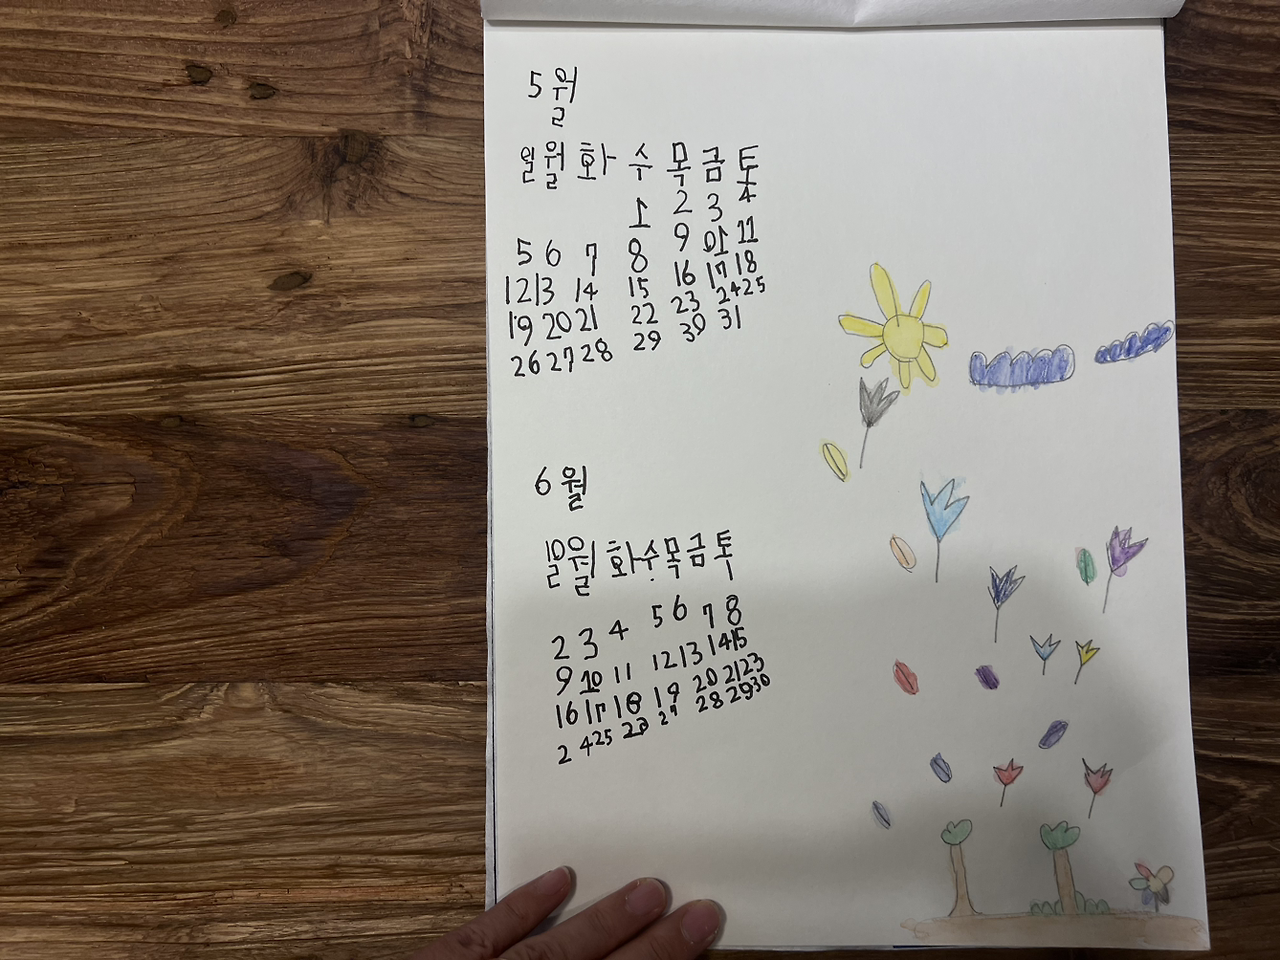 5월
일 월 화 수 목 금 토
1 2 3 4
5 6 7 8 9 10 11
12 13 14 15 16 17 18
19 20 21 22 23 24 25
26 27 28 29 30 31
6월
일 월 화 수 목 금 토
1
2 3 4 5 6 7 8
9 10 11 12 13 14 15
16 17 18 19 20 21 23
2 4 25 27 28 29 30